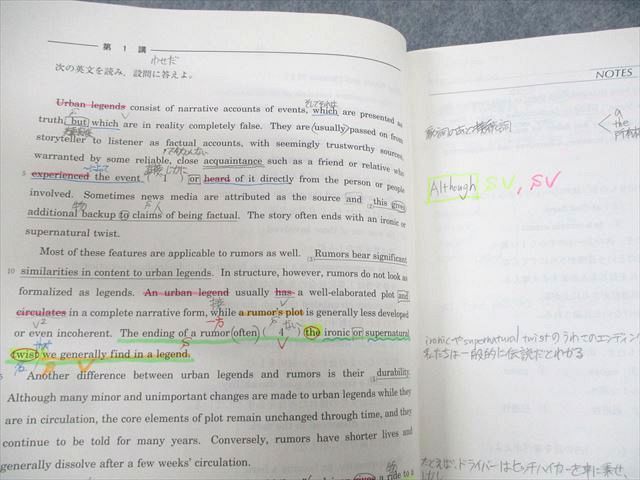 第 1 講
わせだ
次の英文を読み,設問に答えよ。
Urban legends consist of narrative accounts of events, which are presented as
truth but which are in reality completely false. They are (usually) passed on from
storyteller to listener as factual accounts, with seemingly trustworthy sources,
warranted by some reliable, close acquaintance such as a friend or relative who
5 experienced the event ( 1 ) or heard of it directly from the person or people
involved. Sometimes news media are attributed as the source and (2)this gives
additional backup to claims of being factual. The story often ends with an ironic or
supernatural twist.
Most of these features are applicable to rumors as well. (3)Rumors bear significant
10 similarities in content to urban legends. In structure, however, rumors do not look as
formalized as legends. An urban legend usually has a well-elaborated plot and
circulates in a complete narrative form, while a rumor's plot is generally less developed
or even incoherent. The ending of a rumor (often) ( 4 ) the ironic or supernatural
twist we generally find in a legend.
Another difference between urban legends and rumors is their durability.
Although many minor and unimportant changes are made to urban legends while they
are in circulation, the core elements of plot remain unchanged through time, and they
continue to be told for many years. Conversely, rumors have shorter lives and
generally dissolve after a few weeks' circulation.
a ride to a
NOTES
a
the
Although SV, SV
ironicやsupernatural twistのうれてのエンディン
私たちは一般的に伝説だとわかる
たとえば、ドライバーはヒッチハイカーを車に乗せ、